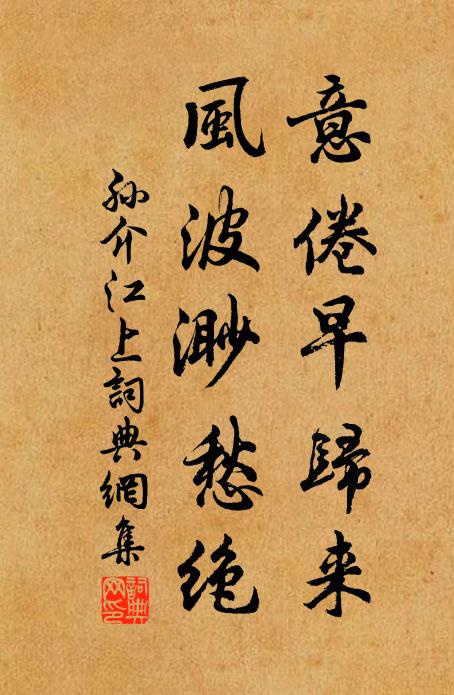 意倦早歸来
風波渺愁绝
孙介江上詞典網集
詞典網印